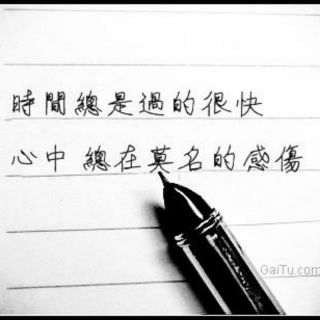 時間總是過的很快
心中 總在莫名的感傷
GaiTu.com